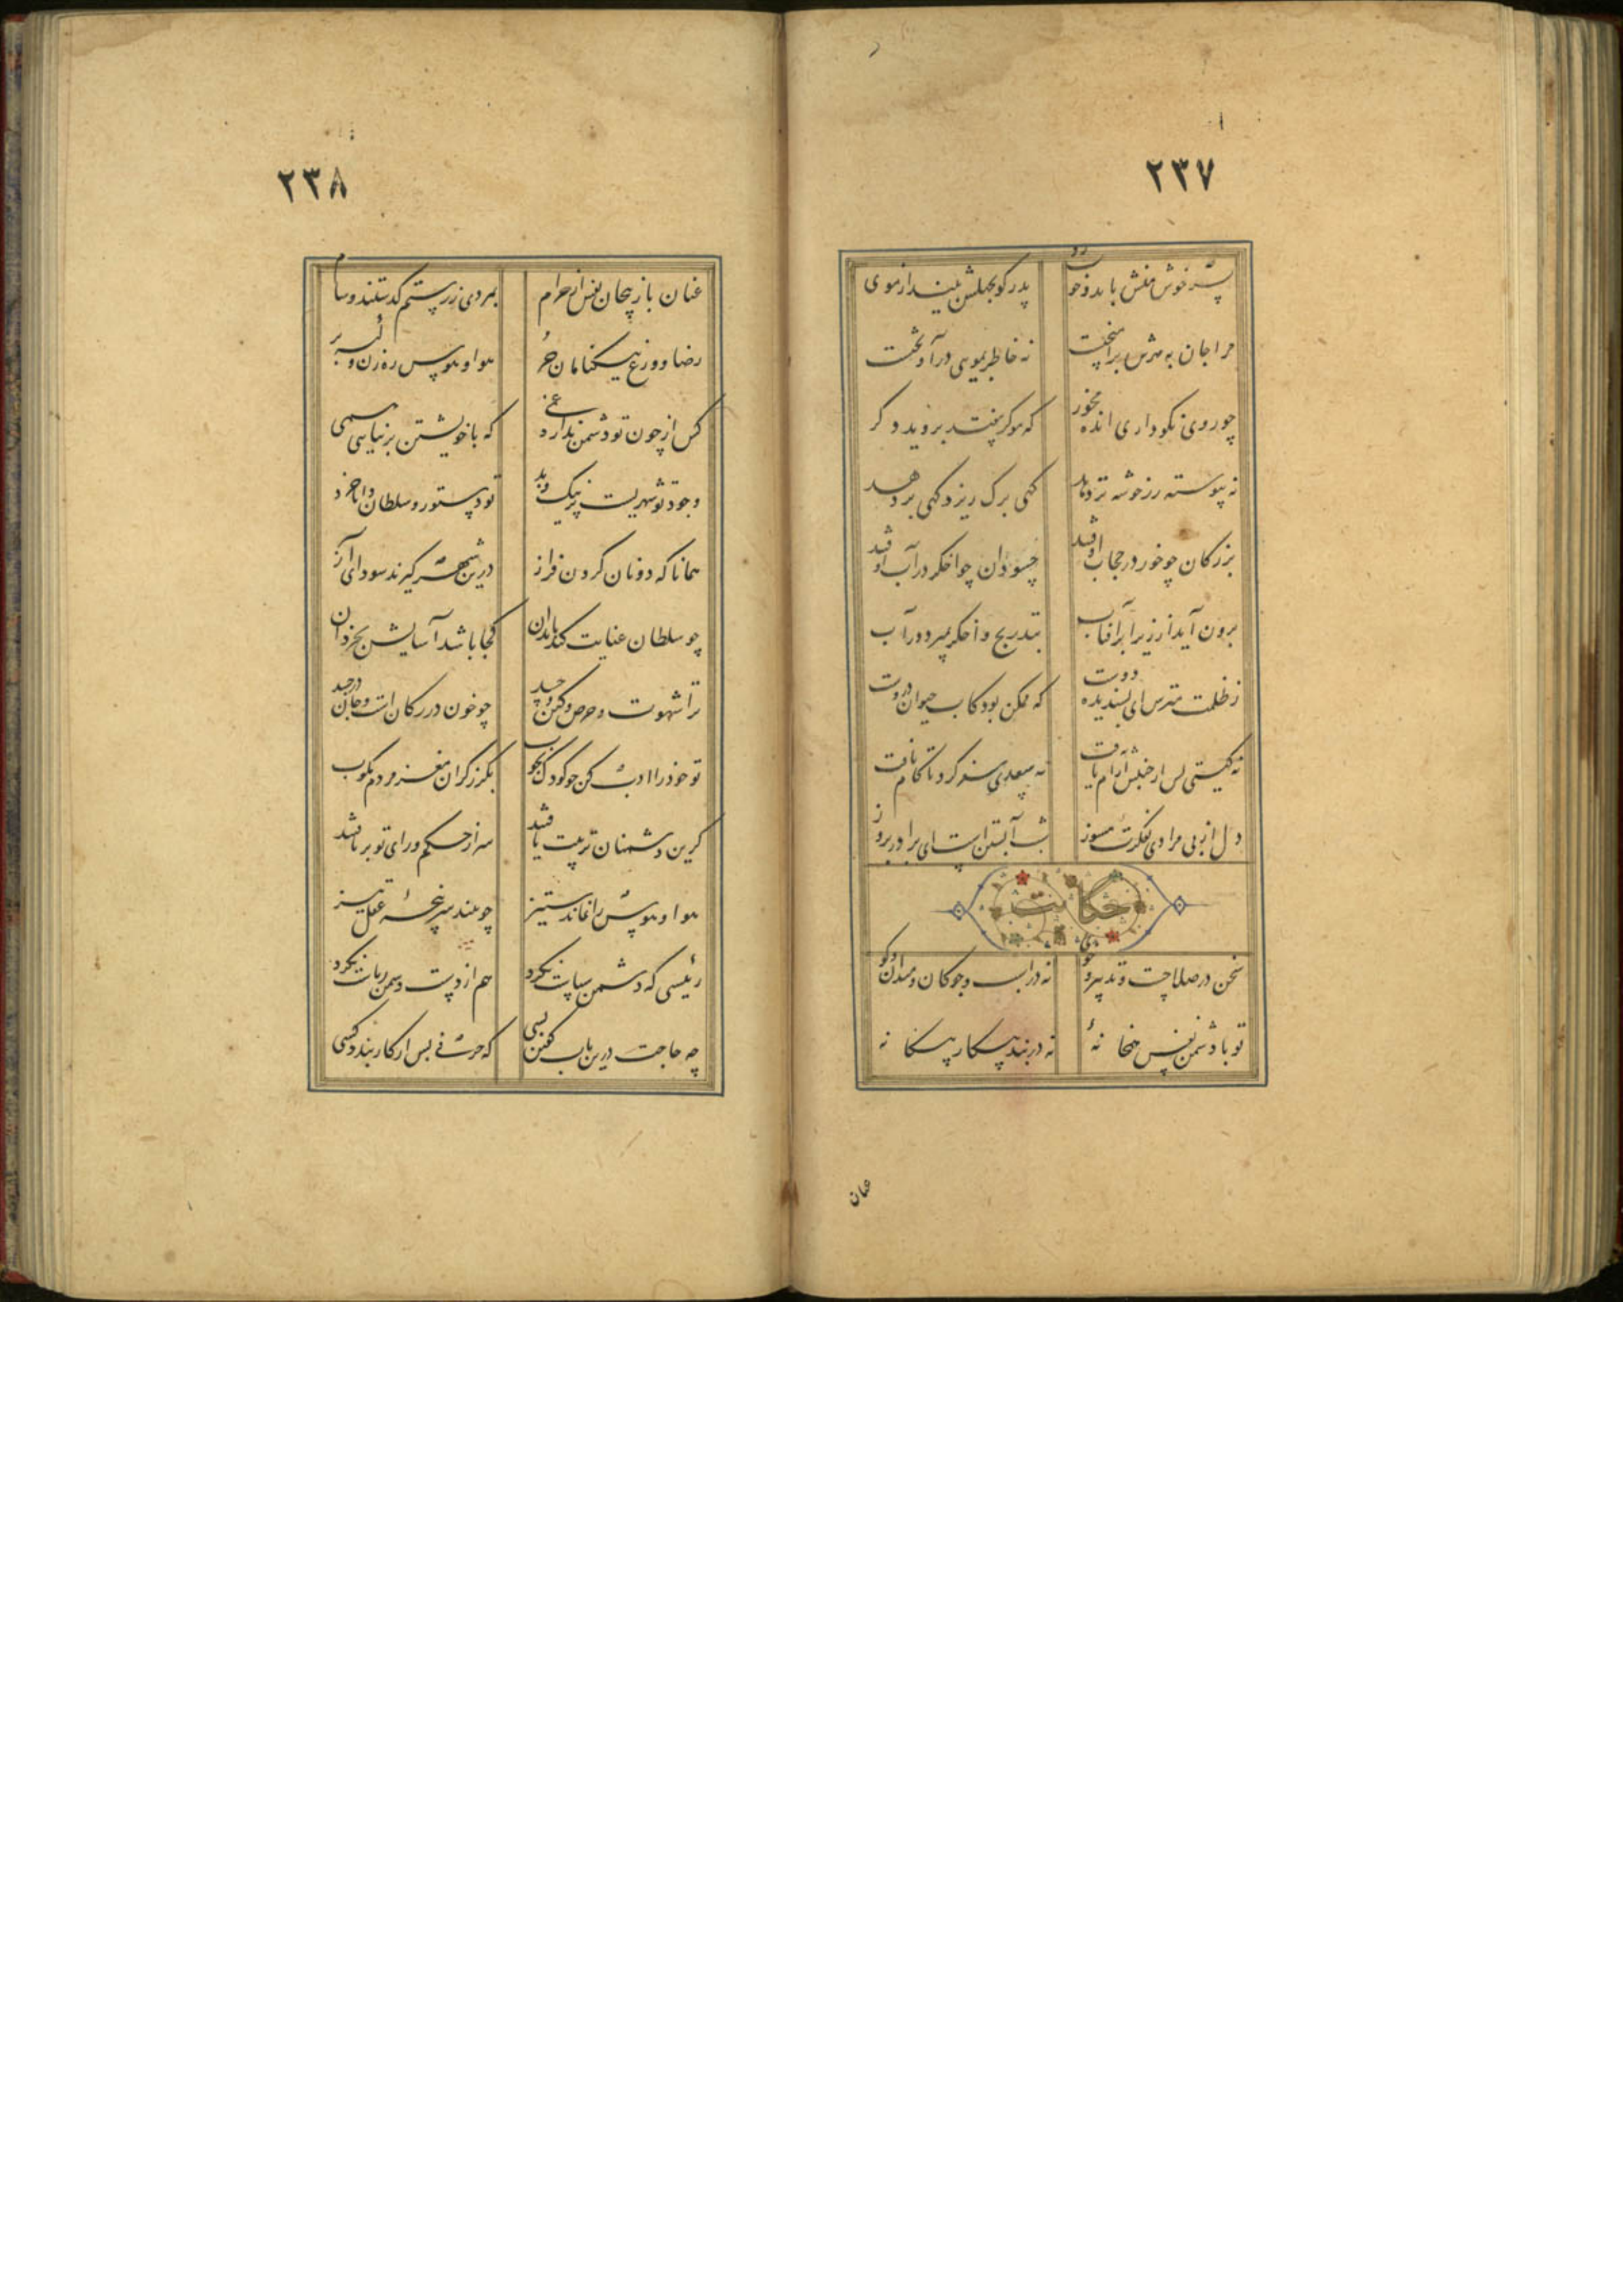 ۲۳۷
پسر خوش منش باید و خوبروی پدر گو بجهلش بینداز موی
مرا جان به مهرش برآمیختست نه خاطر بمویی درآویختست
چو روی نکو داری انده مخور که مو گر بیفتد بروید دگر
نه پیوسته رز خوشه تر دهد گهی برگ ریزد گهی بر دهد
بزرگان چو خور در حجاب اوفتند حسودان چو اخگر در آب اوفتند
برون آید از زیر ابر آفتاب بتدریج و اخگر بمیرد در آب
ز ظلمت مترس ای پسندیده دوست که ممکن بود کاب حیوان دروست
نه گیتی پس از جنبش آرام یافت نه سعدی سفر کرد تا کام یافت
دل از بی مرادی بفکرت مسوز شب آبستن است ای برادر بروز
حکایت
سخن در صلاحست و تدبیر و خوی نه در اسب و چوگان و میدان و گوی
تو با دشمن نفس همخانهٔ نه در بند پیکار بیگانه
عنان
۲۳۸
عنان باز پیچان نفس از حرام بمردی ز رستم گذشتند و سام
رضا و ورع نیکنامان حر هوا و هوس رهزن و کیسه بر
کس از چون تو دشمن ندارد غمی که با خویشتن بر نیایی همی
وجود تو شهریست پر نیک و بد تو دستور و سلطان و دانا خرد
همانا که دونان گردن فراز درین شهر گیرند سودای آز
چو سلطان عنایت کند با بدان کجا باشد آسایش بخردان
ترا شهوت و حرص و کین و حسد چو خون در رگان است و جان در جسد
تو خود را ادب کن چو کودک بچوب بگرز گران مغز مردم مکوب
گر این دشمنان تربیت یافتند سر از حکم و رای تو برتافتند
هوا و هوس را نماند ستیز چو بیند سرپنجهٔ عقل تیز
رئیسی که دشمن سیاست نکرد هم از دست دشمن ریاست نکرد
چه حاجت درین باب گفتن بسی که حرفی بس ار کار بندد کسی